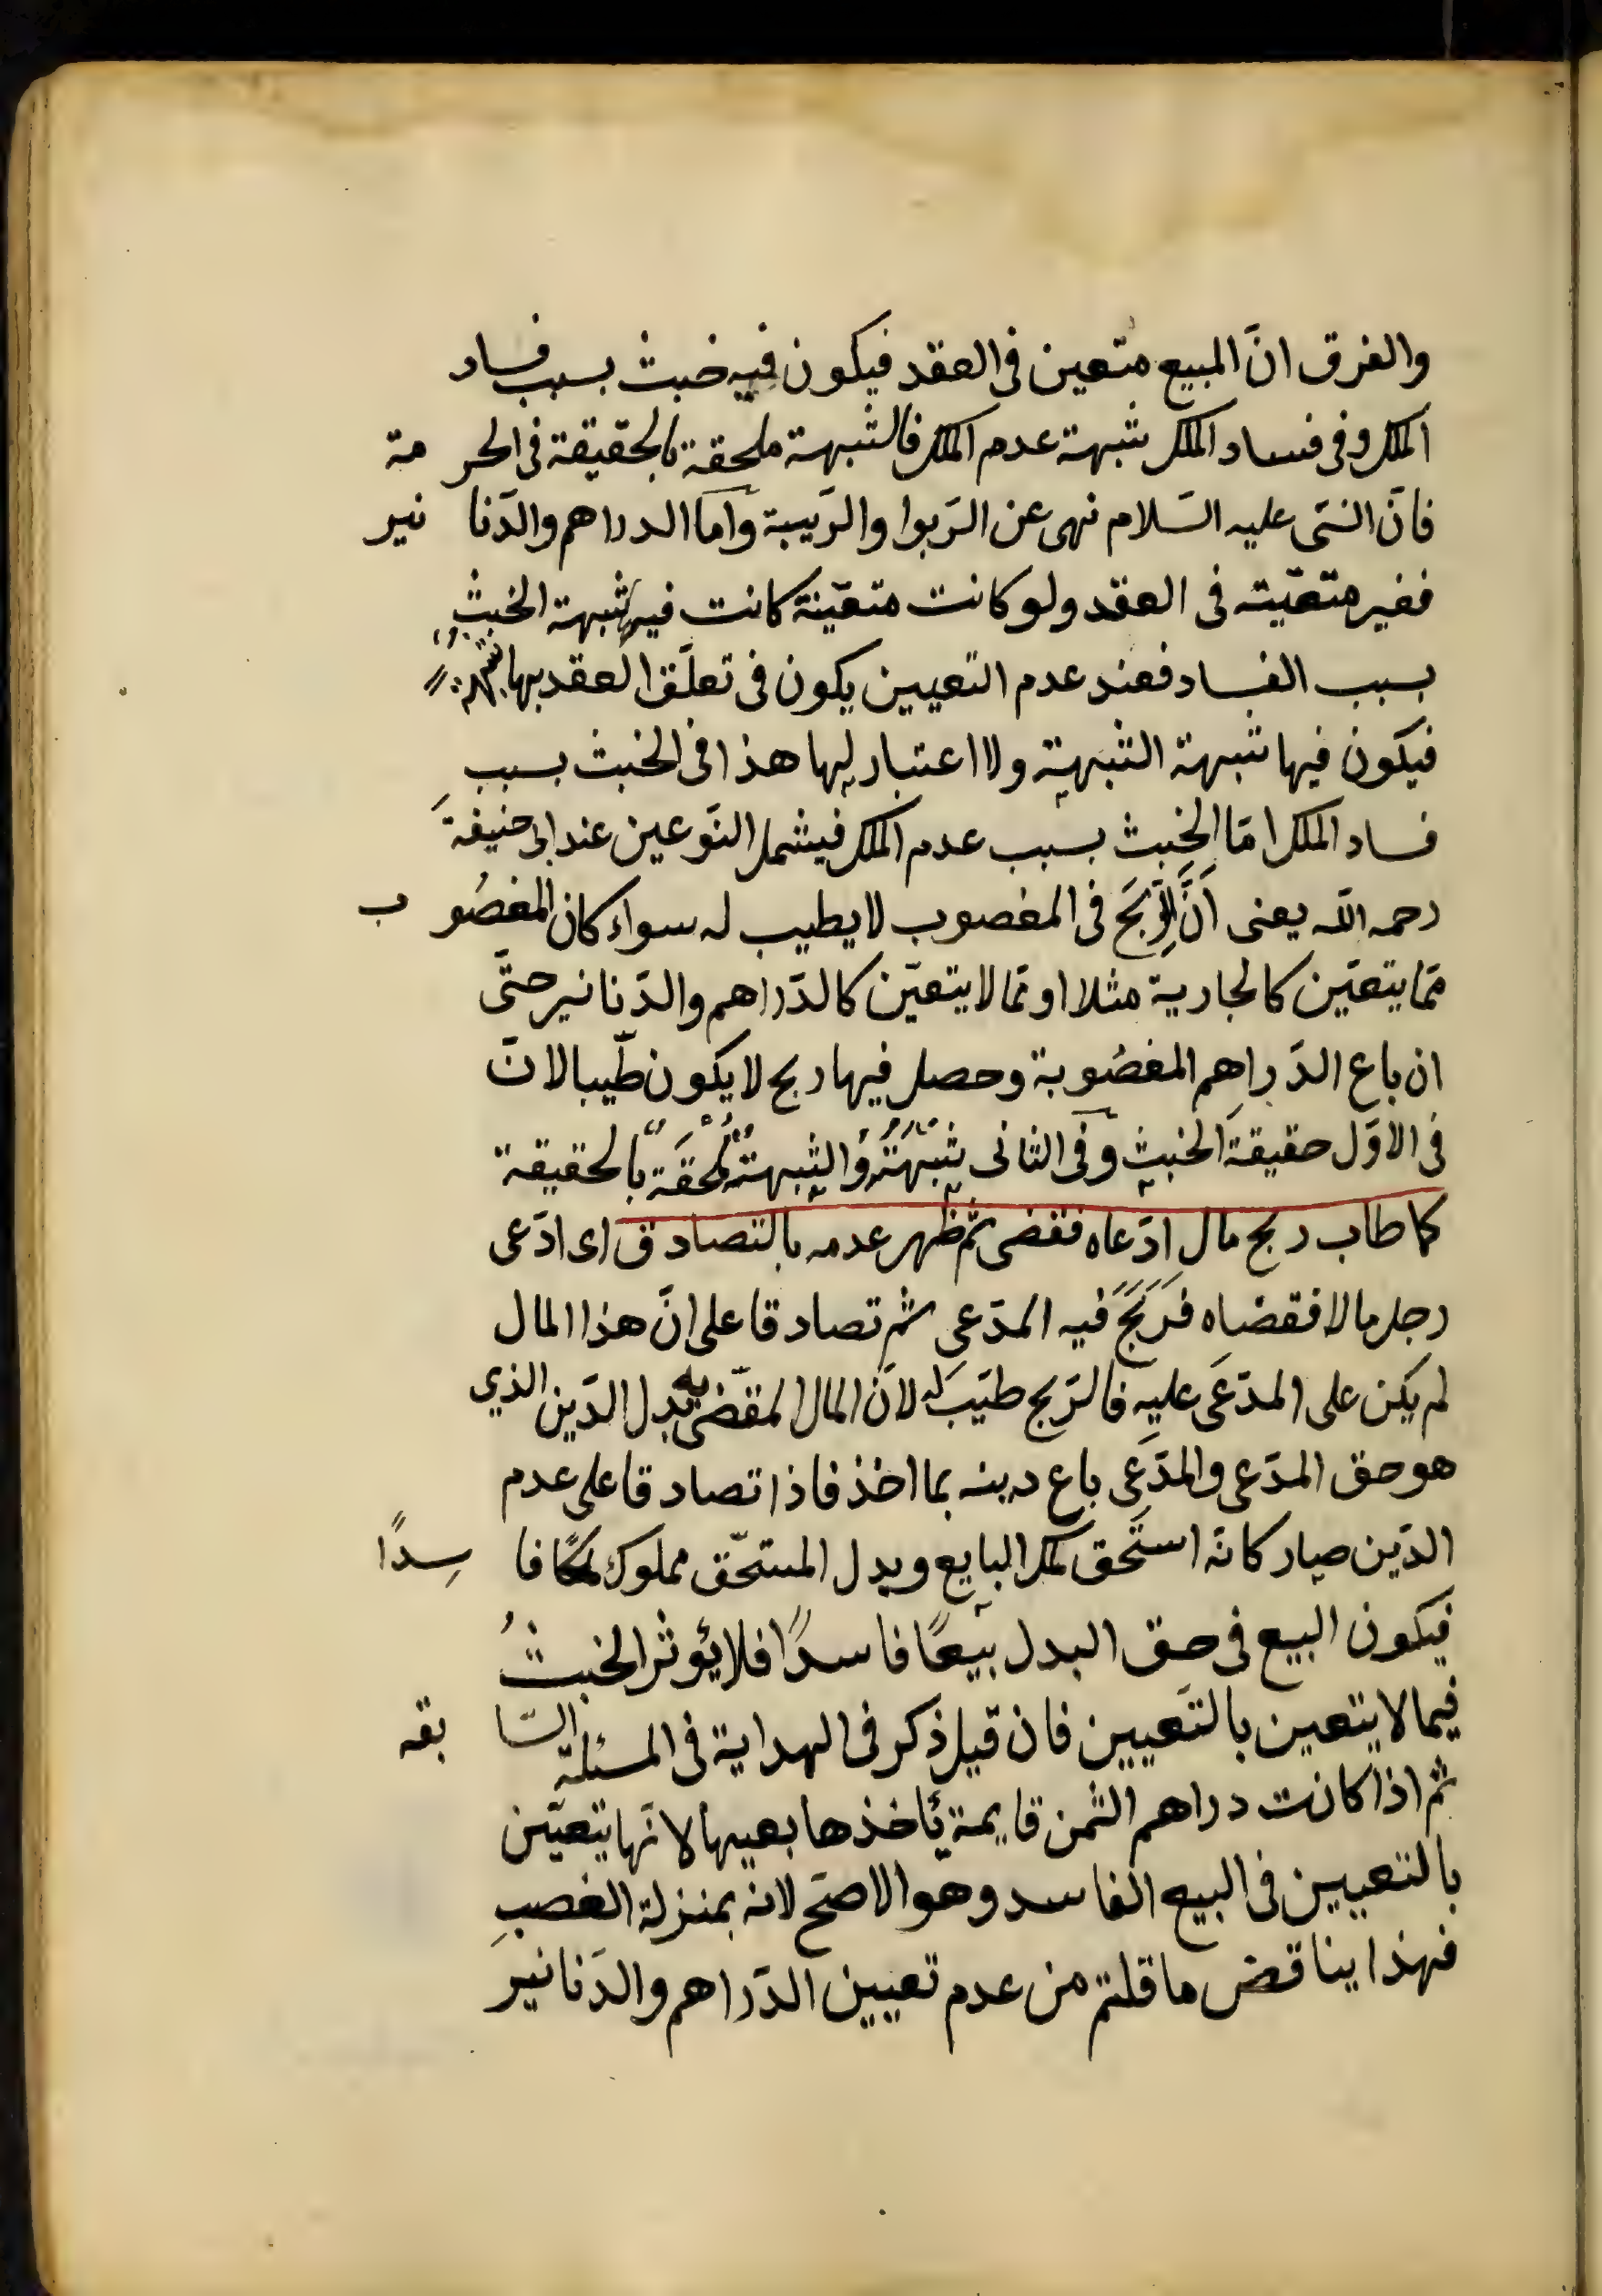 والفرق انّ المبيع متعين فى العقد فيكون فيه خبث بسبب فساد
الملك وفى فساد الملك شبهة عدم الملك فالشبهة ملحقة بالحقيقة فى الحر مة
فانّ النبّى عليه السّلام نهى عن الرّبوا والرّيبة وامّا الدراهم والدّنا نير
فغير متعيّنة فى العقد ولو كانت متعيّنة كانت فيها شبهة الخبث
بسبب الفساد فعند عدم التعيين يكون فى تعلّق العقد بها شبهة
فيكون فيها شبهة الشبهة ولا اعتبار لها هذا فى الخبث بسبب
فساد الملك امّا الخبث بسبب عدم الملك فيشمل النّوعين عند ابى حنيفةَ
رحمه اللّه يعنى انّ الرّبحَ فى المغصوب لا يطيب له سواء كان المغصُو ب
ممّا يتعيّن كالجارية مثلا او ممّا لا يتعيّن كالدّراهم والدّنانير حتّى
ان باع الدّراهم المغصُوبة وحصل فيها ربح لا يكون طيّبا لانّ
فى الاوّل حقيقة الخبث وفى الثانى شبهَتَهُ والشبهةُ ملحقَة بالحقيقة
كما طاب ربح مال ادّعاه فقضى ثم ظهر عدمه بالتصادق اى ادّعى
رجل مالا فقضاه فرَبَحَ فيه المدّعى ثم تصادقا على انّ هذا المال
لم يكن على المدّعَى عليه فالرّبح طيّبٌ له لانّ المال المقضّى به بدل الدّين الذي
هو حق المدّعى والمدّعِى باع دينه بما اخذ فاذا تصادقا على عدم
الدّين صار كانّه استَحق ملك البايع وبدل المستحّق مملوك ملكًا فا سِدًا
فيكون البيع فى حق البدل بيعًا فاسدًا فلا يؤثر الخبثُ
فيما لا يتعين بالتعيين فان قيل ذكر فى الهداية فى المسئلة السّا بقه
ثم اذا كانت دراهم الثمن قايمة يأخذها بعينها لانّها تتعيّن
بالتعيين فى البيع الفاسد وهو الاصحّ لانه بمنزلة الغصبِ
فهذا يناقض ما قلتم من عدم تعيين الدّراهم والدّنانير